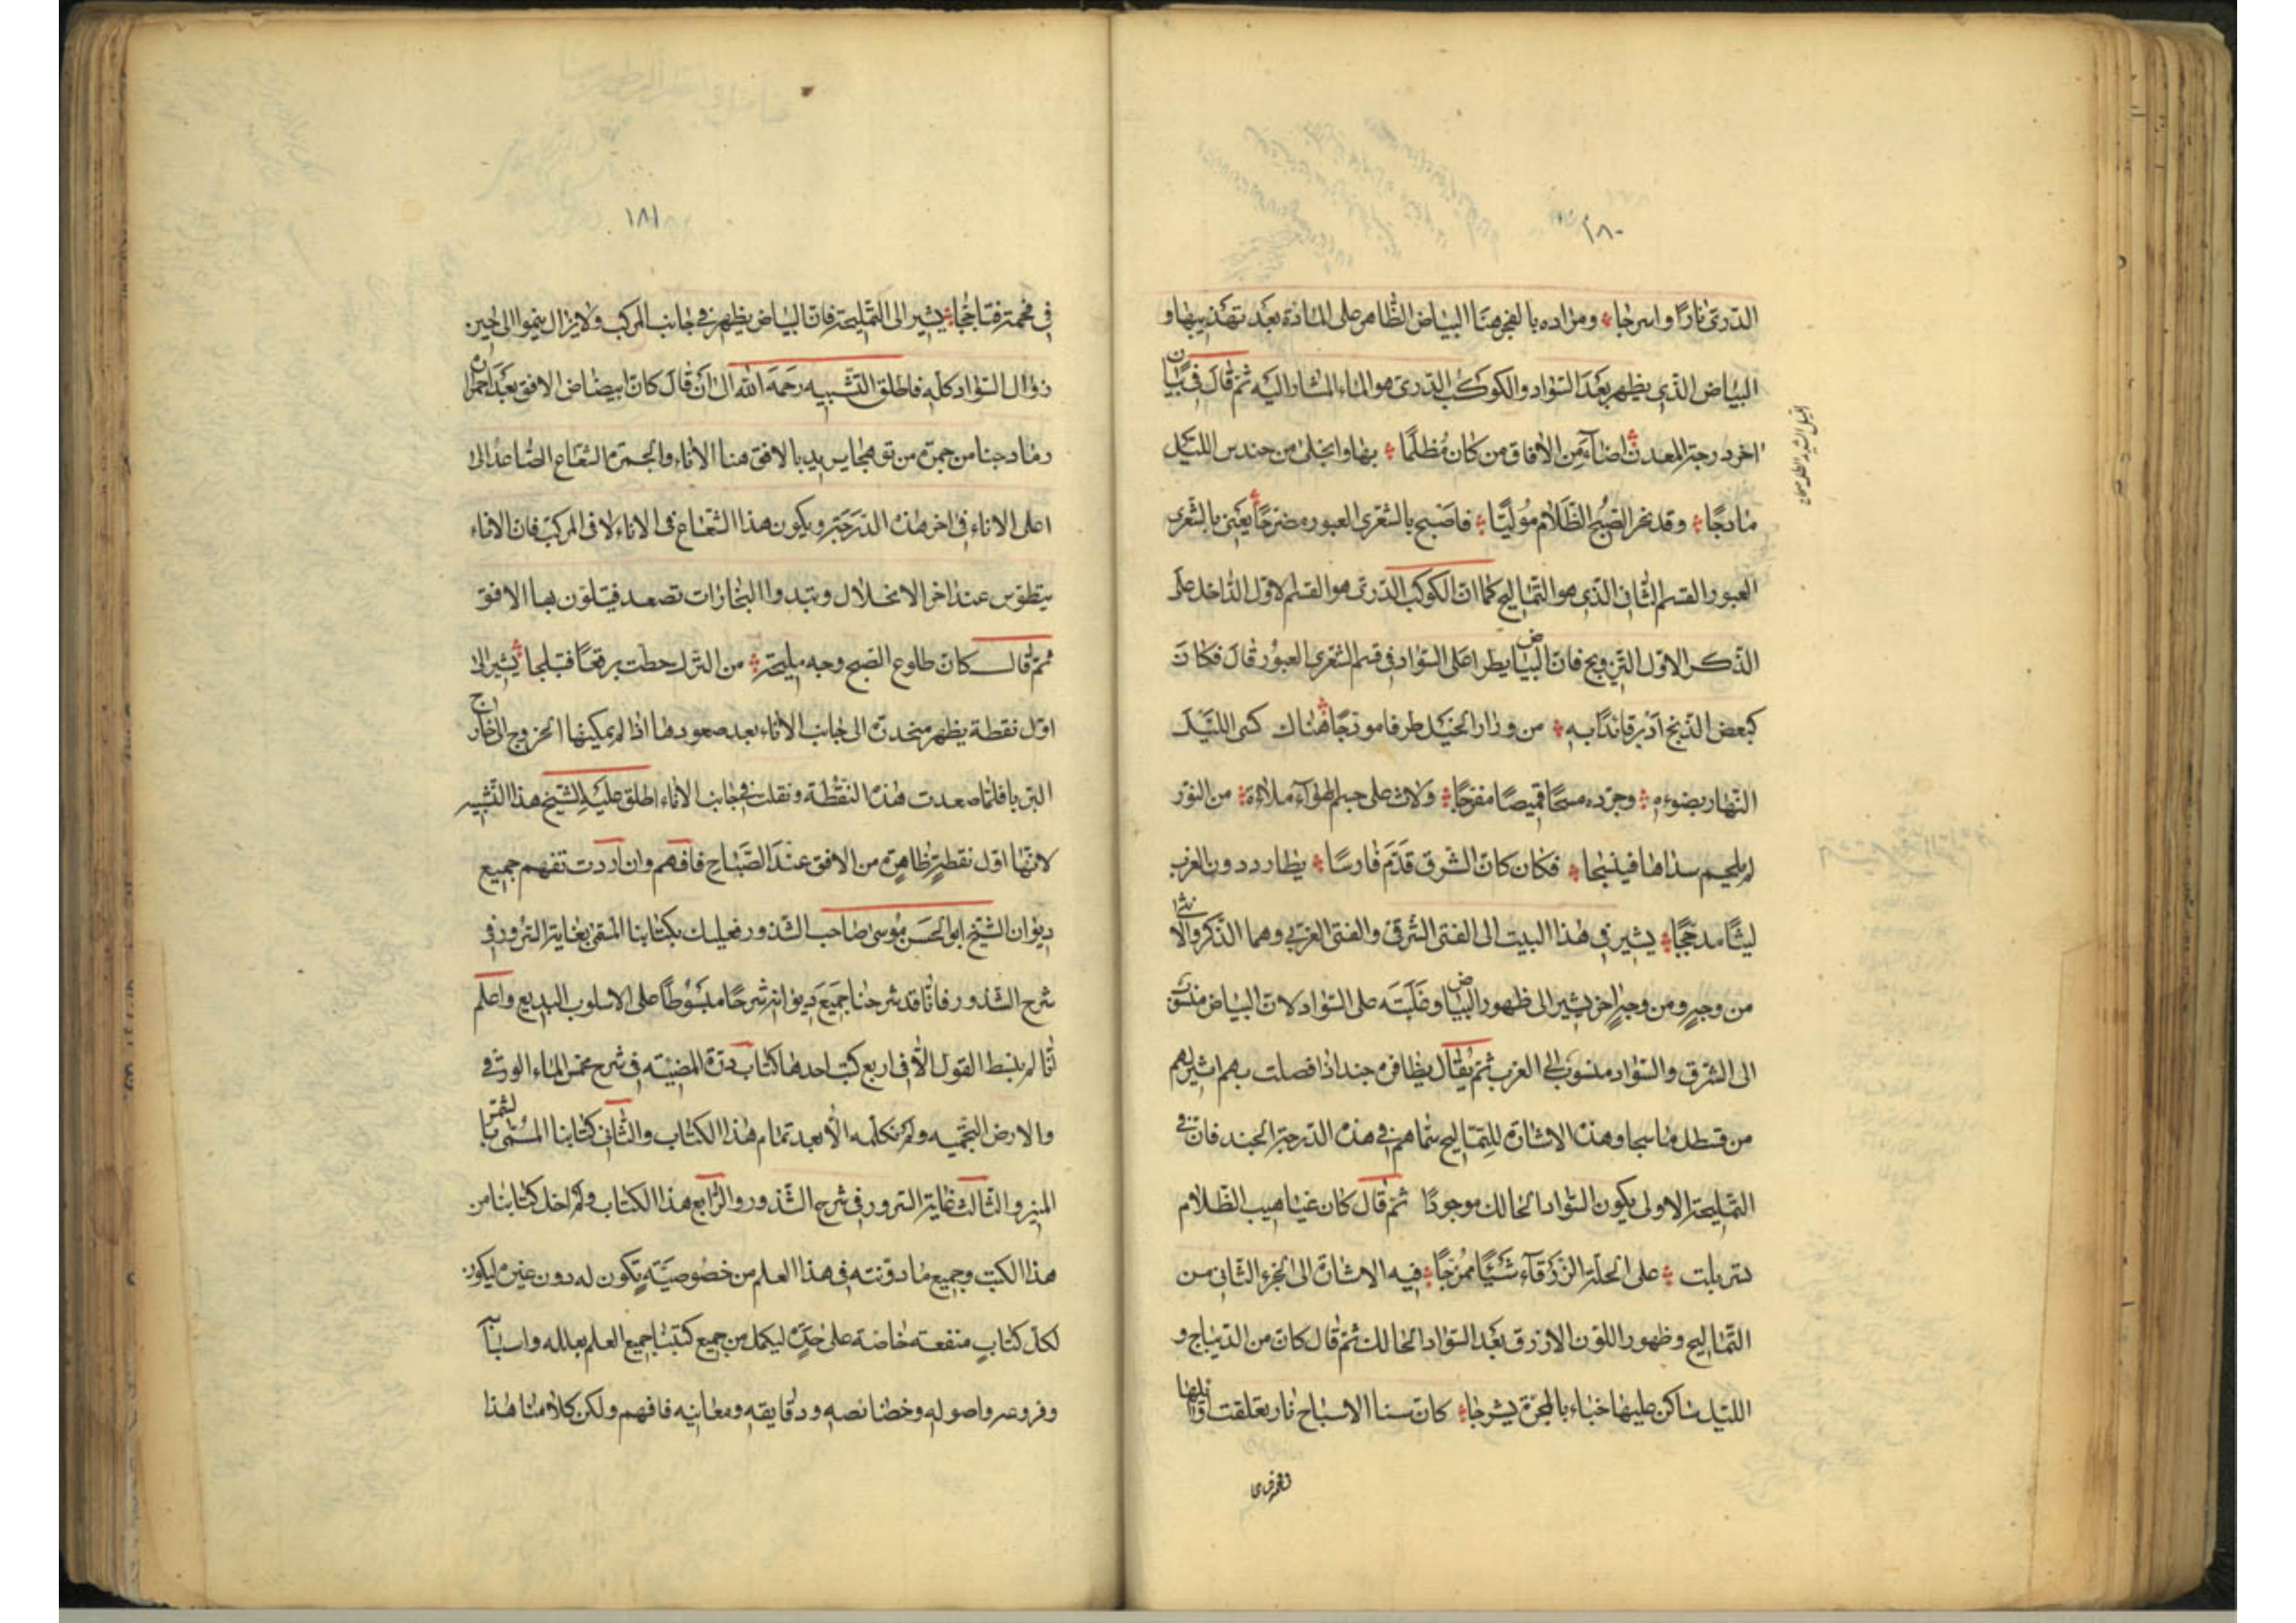 ١٨٠
الدرى نارًا واسرجا ومراده بالفجر هنا البياض الظاهر على المادة بعد تهذيبها و
البياض الذى يظهر بعد السواد والكوكب الدرى هو الماء المشار اليه ثم قال فى بيان
اخر درجة المعدن اضآء من الافاق من كان مُظلمًا بها وانجلى من حندس الليل
مادجًا وقد نحر الصبح الظلام موليًا فاصبح بالشعرى العبور مضرجًا يعنى بالشعرى
العبور القسم الثانى الذى هو التماليح كما ان الكوكب الدرى هو القسم لاول الداخل على
الذكر الاول التزويج فان البياض يطرا على السواد فى قسم الشعرى العبور قال فكان
كبعض الذبح ادبر قائدًا به من ورار الخيل طرفا مودجًا هناك كسى الليل
النهار بضوءه وجرده مسحًا قميصًا مفرجًا ولاث على جسم الهوآء ملاءة من النور
لم يلحم سداها فينسجا فكان كان الشرق قدم فارسًا يطارد دون الغرب
ليثًا مدججًا يشير فى هذا البيت الى الفتى الشرقى والفتى الغربى وهما الذكر والانثى
من وجهٍ ومن وجهٍ اخر يشير الى ظهور البياض وغلبته على السواد لان البياض منسوب
الى الشرق والسواد منسوب الى الغرب ثم يقال يظافره جند اذا فصلت بهم اشرهم
من قسطل ما سجا وهذه الاشارة للتماليح سماهم فى هذه الدرجة الجند فان فى
التمليحة الاولى يكون السواد الحالك موجودًا ثم قال كان غياهيب الظلام
تسربلت على الحلة الزرقآء شيئًا ممزجًا فيه الاشارة الى الجزء الثانى من
التماليح وظهور اللون الازرق بعد السواد الحالك ثم قال كان من الديباج و
الليل ساكن عليها خباء بالمجرة يشرجا كان سنا الاسباح نار تعلقت اوائلها
١٨١
فى فحمة فتاججا يشير الى التمليحة فان البياض يظهر فى جانب المركب ولا يزال ينموا الى حين
زوال السواد كله فاطلق التشبيه رحمه الله الى ان قال كان ابيضاض الافق بعد احمراره
رماد جنا من جمرة من توهجا يريد بالافق هنا الاناء والجمرة الشعاع الصاعد الى
اعلى الاناء فى اخر هذه الدرجة ويكون هذا الشعاع فى الاناء لا فى المركب فان الاناء
يتطوس عند اخر الانحلال وتبدوا البخارات تصعد فيتلون بها الافق
ثم قال كان طلوع الصبح وجه مليحة من الترك حطت برقعًا فتبلجا يشير الى
اول نقطة يظهر منحدرة الى جانب الاناء بعد صعودها اذا لم يمكنها الخروج الى خارج
البربا فلما صعدت هذه النقطة ونقلت فى جانب الاناء اطلق عليه الشيخ هذا التشبيه
لانها اول نقطةٍ ظاهرة من الافق عند الصباح فافهم وان اردت تفهم جميع
ديوان الشيخ ابو الحسن موسى صاحب الشذور فعليك بكتابنا المسمى بغاية السرور فى
شرح الشذور فانا قد شرحنا جميع ديوانه شرحًا مبسوطًا على الاسلوب البديع واعلم
انا لم نبسط القول الا فى اربع كتب احدها كتاب درة المضيئه فى شرح مخمس الماء الورقى
والارض النجميه ولم نكمله الا بعد تمام هذا الكتاب والثانى كتابنا المسمى بالشمس
المنير والثالث غاية السرور فى شرح الشذور والرابع هذا الكتاب ولم اخل كتابنا من
هذا الكتب وجميع ما دونته فى هذا العلم من خصوصيةٍ تكون له دون غيره ليكون
لكل كتابٍ منفعة خاصة على حدةٍ ليكمل من جميع كتبنا جميع العلم بعلله واسبابه
وفروعه واصوله وخصائصه ودقايقه ومعانيه فافهم ولكن كلامنا هذا